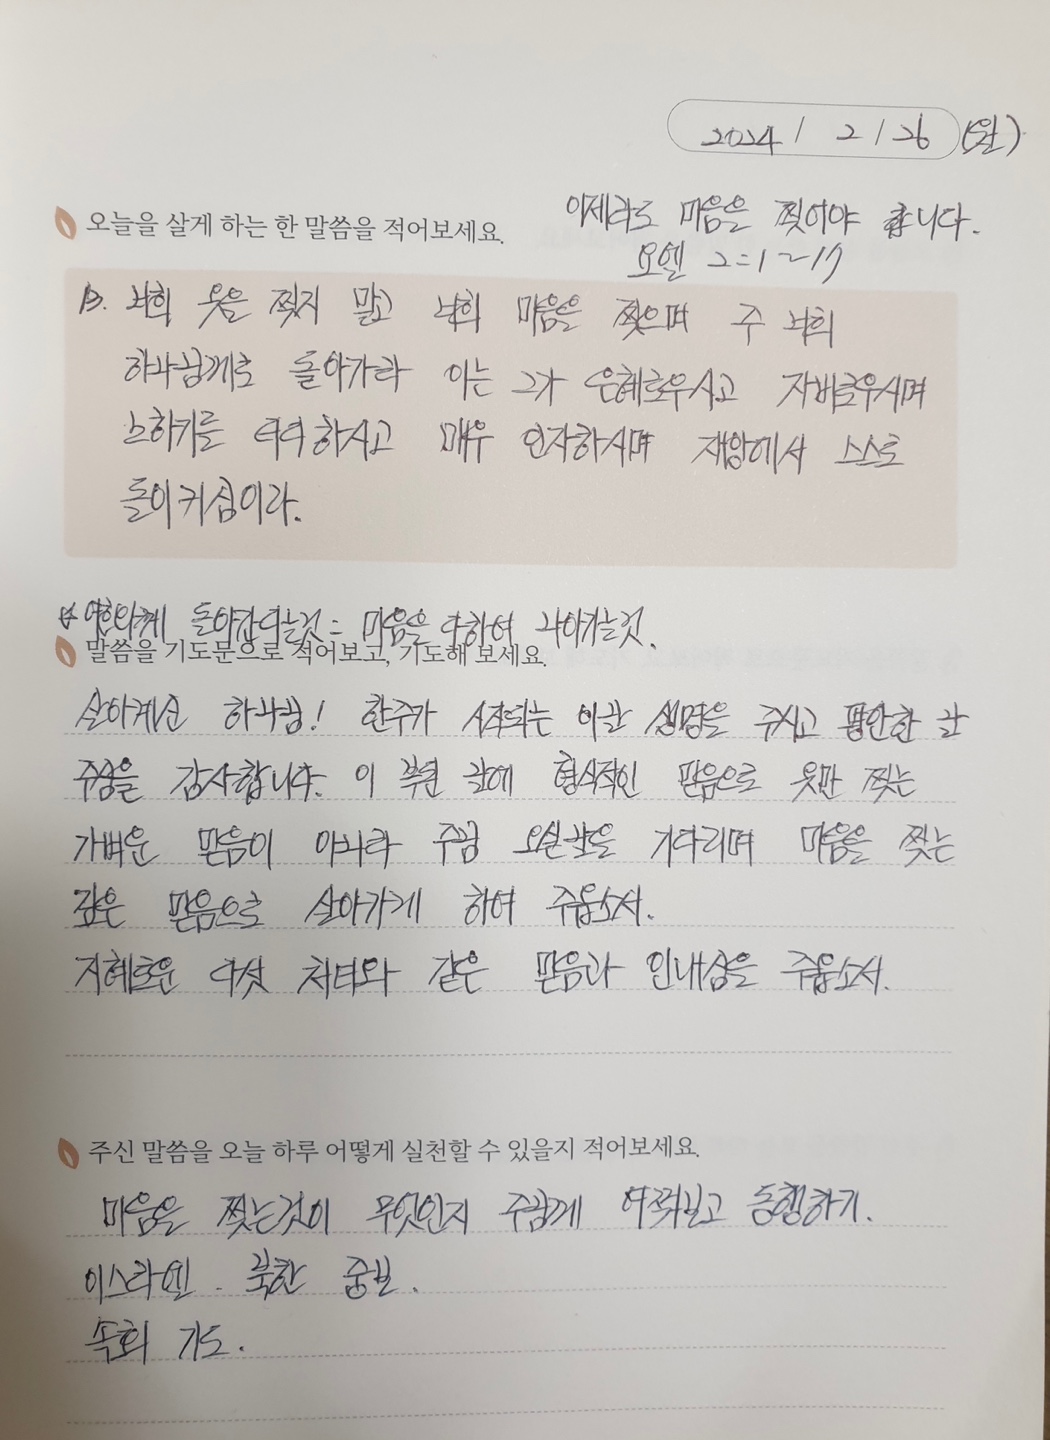 2024 / 2 / 26 (월)
이제라도 마음을 찢어야 합니다.
오늘을 살게 하는 한 말씀을 적어보세요.
요엘 2:1~17
13. 너희 옷을 찢지 말고 너희 마음을 찢으며 주 너희
하나님께로 돌아가라 이는 그가 은혜로우시고 자비로우시며
노하기를 더디하시고 매우 인자하시며 재앙에서 스스로
돌이키심이라.
여호와께 돌아간다는것 = 마음을 다하여 나아가는것.
말씀을 기도문으로 적어보고, 기도해 보세요.
살아계신 하나님! 한주가 시작되는 이날 생명을 주시고 평안한 날
주심을 감사합니다. 이 부련 날에 형식적인 믿음으로 옷만 찢는
가벼운 믿음이 아니라 주님 오실날을 기다리며 마음을 찢는
깊은 믿음으로 살아가게 하여 주옵소서.
지혜로운 다섯 처녀와 같은 믿음과 인내심을 주옵소서.
주신 말씀을 오늘 하루 어떻게 실천할 수 있을지 적어보세요.
마음을 찢는것이 무엇인지 주님께 여쭤보고 동행하기.
이스라엘. 북한 중보.
속회 기도.